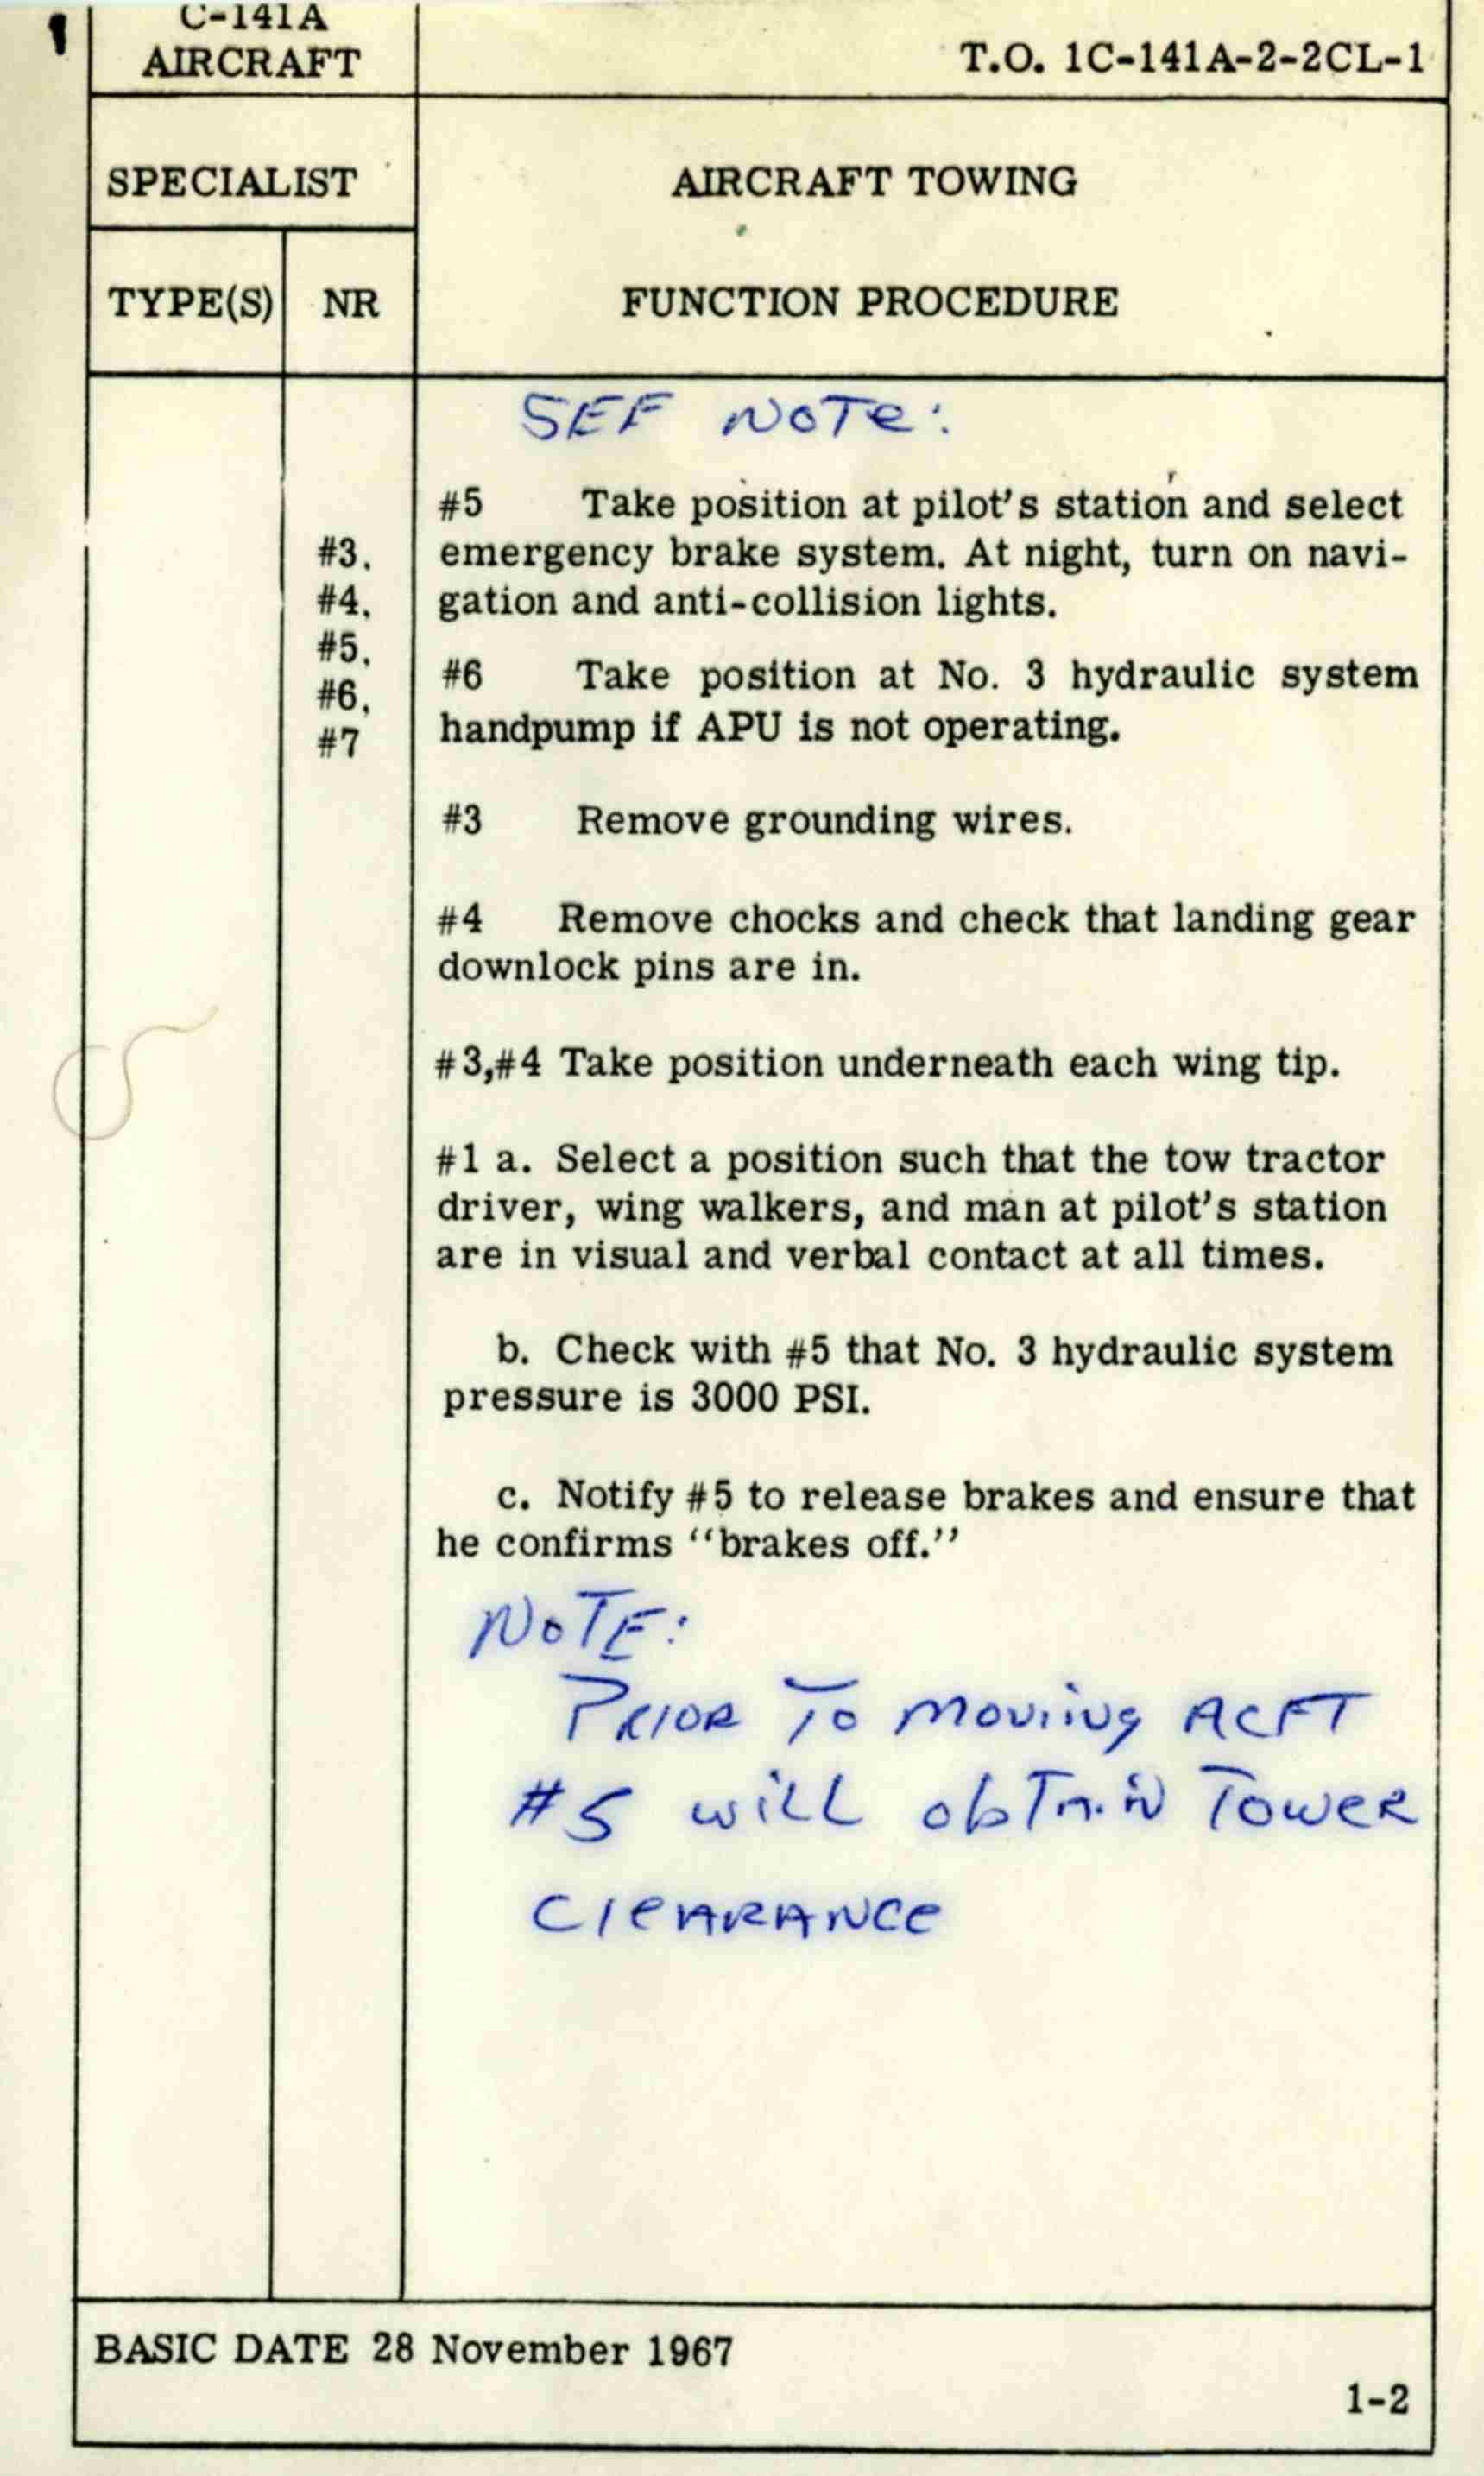 C-141A
AIRCRAFT
T.O. 1C-141A-2-2CL-1
SPECIALIST
AIRCRAFT TOWING
TYPE(S)
NR
FUNCTION PROCEDURE
SEE NOTE:
#3.
#4.
#5.
#6.
#7
#5 Take position at pilot's station and select
emergency brake system. At night, turn on navi-
gation and anti-collision lights.
#6 Take position at No. 3 hydraulic system
handpump if APU is not operating.
#3 Remove grounding wires.
#4 Remove chocks and check that landing gear
downlock pins are in.
#3,#4 Take position underneath each wing tip.
#1 a. Select a position such that the tow tractor
driver, wing walkers, and man at pilot's station
are in visual and verbal contact at all times.
b. Check with #5 that No. 3 hydraulic system
pressure is 3000 PSI.
c. Notify #5 to release brakes and ensure that
he confirms "brakes off."
NOTE:
PRIOR TO MOVIING ACFT
#5 will obTAiN TOWER
CleARANCe
BASIC DATE 28 November 1967
1-2